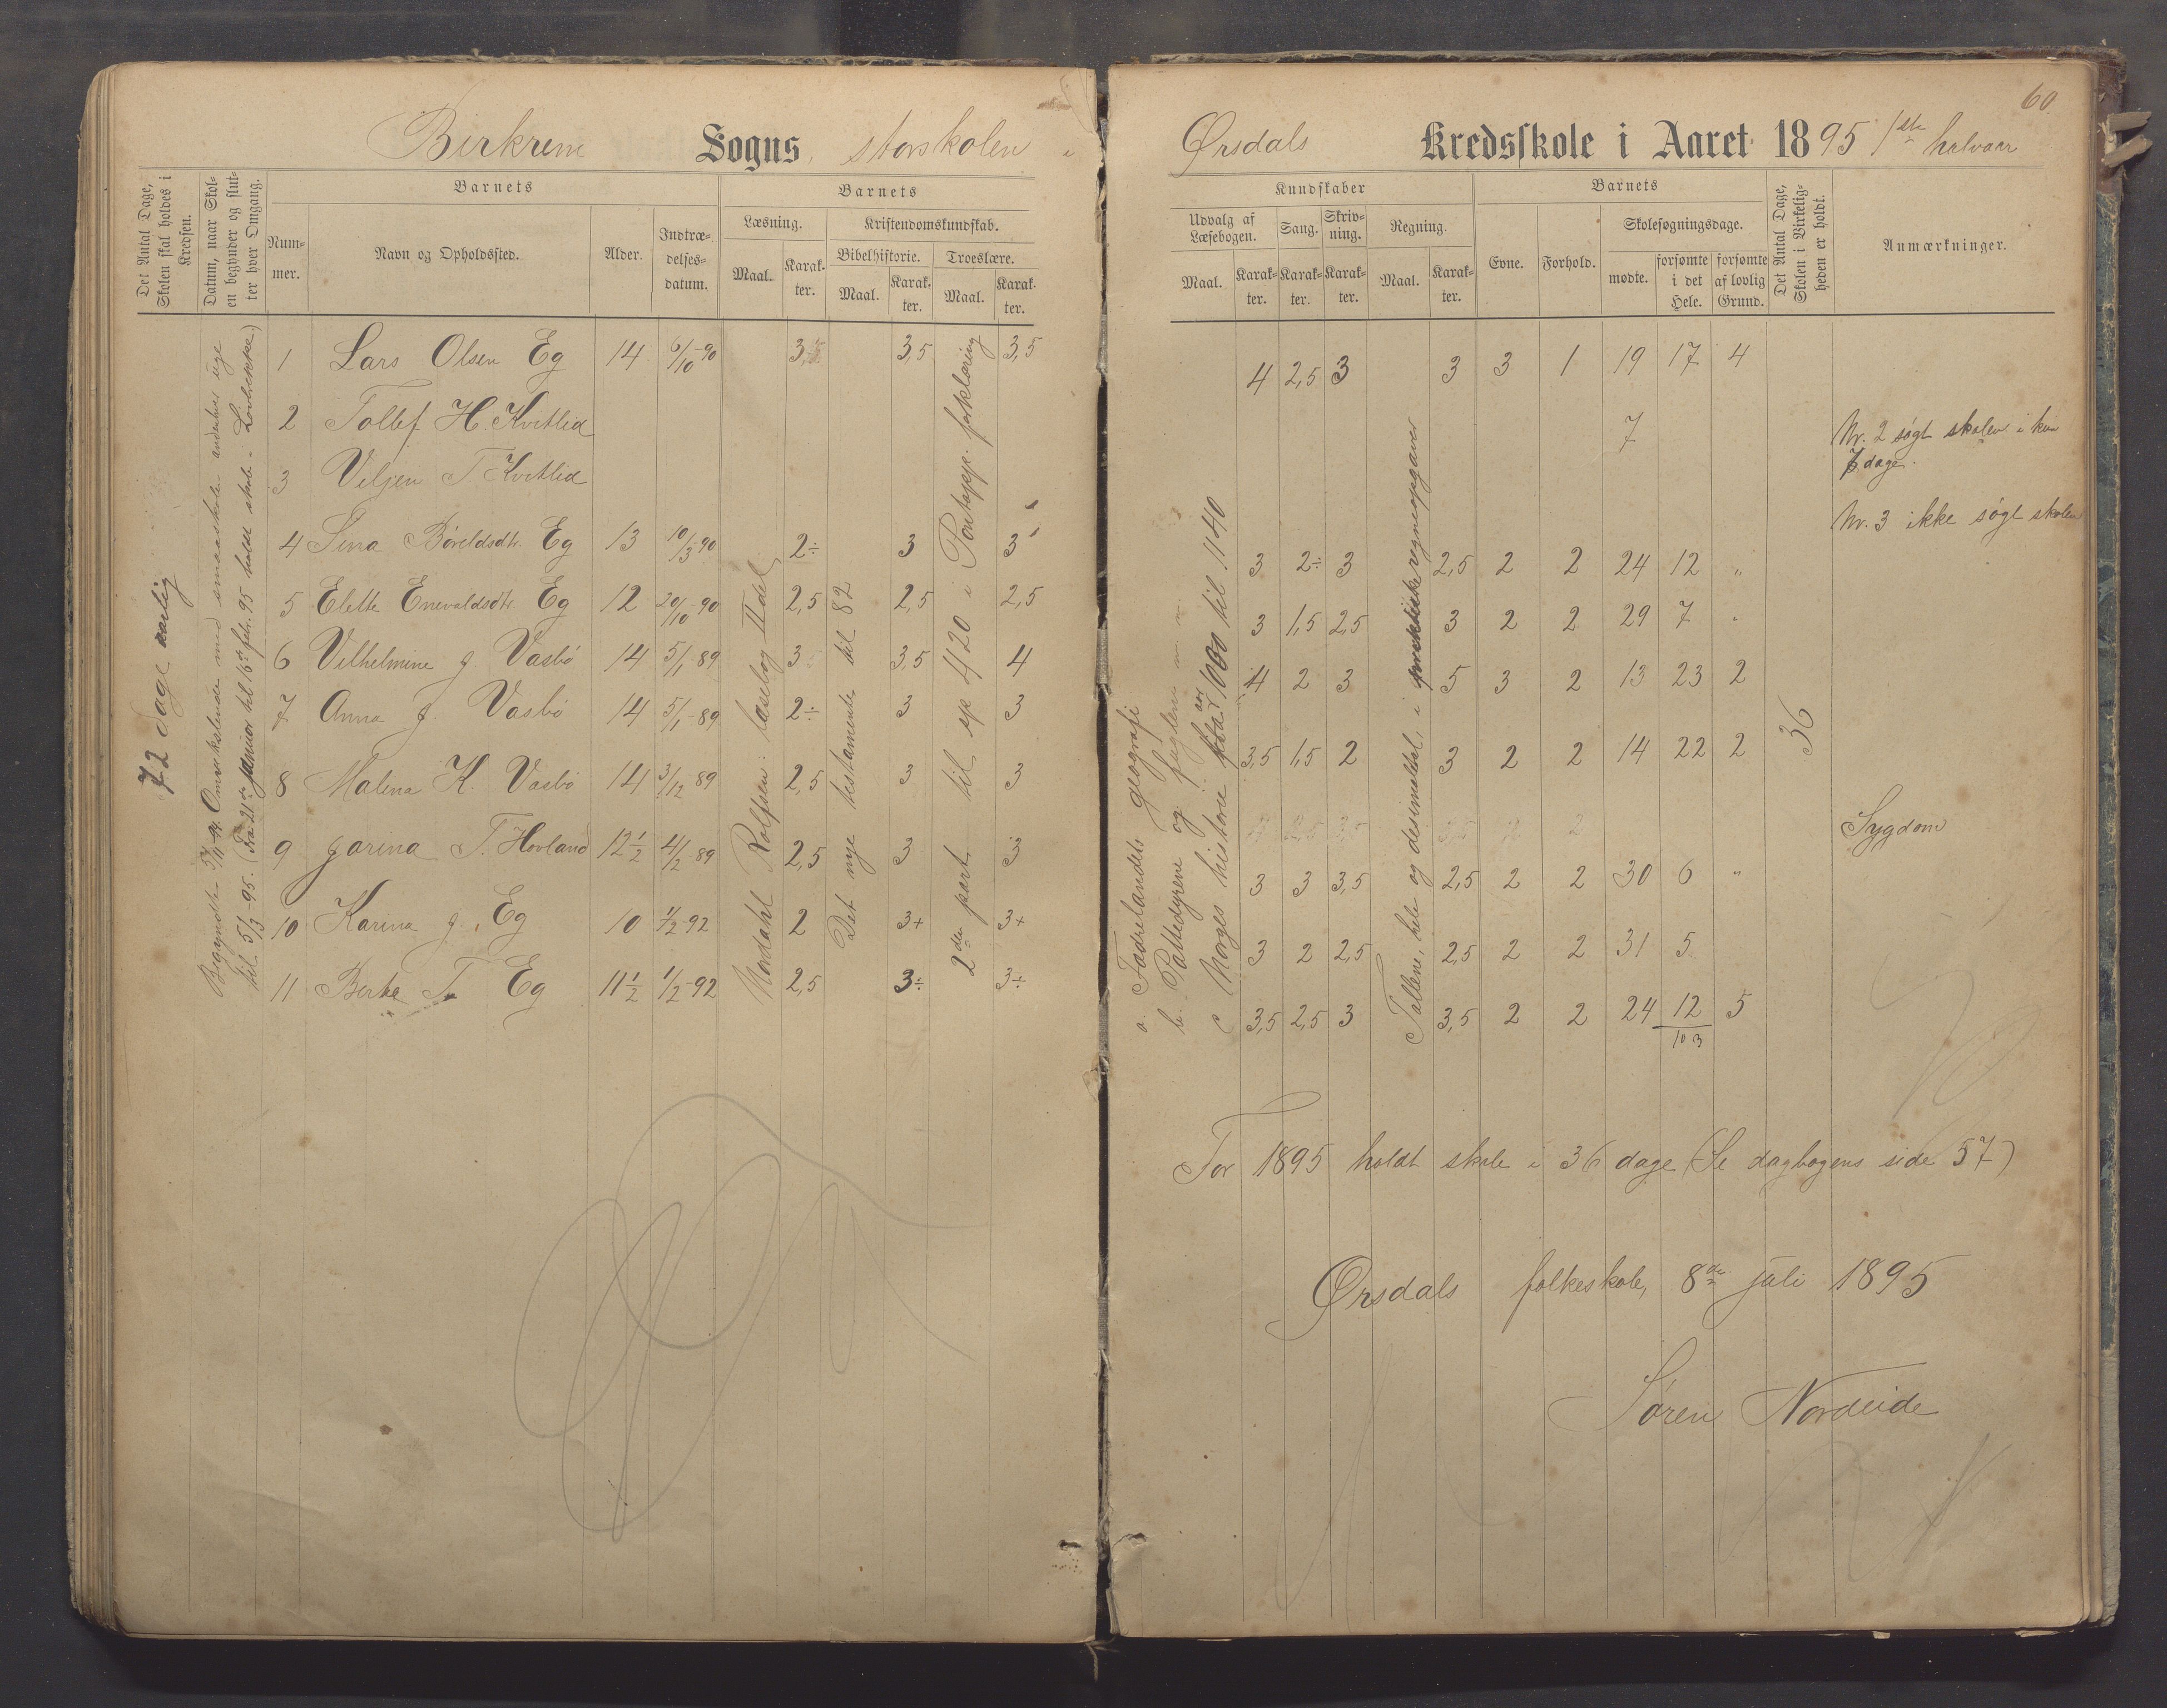 60.
Birkrem Sogns storskolen i Ørsdals Kredsskole i Aaret 1895 1ste halvaar
Det Antal Dage, Skolen skal holdes i Kredsen.
Datum, naar Skolen begynder og slutter hver Omgang.
Barnets
Nummer.
Navn og Opholdssted.
Alder.
Indtrædelsesdatum.
Barnets
Læsning.
Maal.
Karakter.
Kristendomskundskab.
Bibelhistorie.
Maal.
Karakter.
Troeslære.
Maal.
Karakter.
Kundskaber
Udvalg af Læsebogen.
Maal.
Karakter.
Sang.
Karakter.
Skrivning.
Karakter.
Regning.
Maal.
Karakter.
Barnets
Evne.
Forhold.
Skolesøgningsdage.
mødte.
forsømte i det Hele.
forsømte af lovlig Grund.
Det Antal Dage, Skolen i Virkeligheden er holdt.
Anmærkninger.
72 dage aarlig
Omvekslende med smaaskolen anderhver uge
til 5/3-95. (Fra 21de januar til 16de febr. 95 holdt skole - Lovbekke)
Nordahl Rolfsen: læsebog II del
Det nye testamente til 82
2den part til sp 420 i Pontopp. forklaring
a. Fædrelandets geografi
b. Pattedyrene og fuglene
c Norges historie fra aar 1000 til 1140
Tallene, hele og desimaltal, i praktiske regneopgaver
1 Lars Olsen Eg 14 6/10-90 3,5 3,5 3,5 4 2,5 3 3 3 1 19 17 4
2 Tollef H. Kvitlid 7 Nr. 2 søgt skolen i kun
7 dage.
3 Veljen T Kvitlid Nr. 3 ikke søgt skolen
4 Sina Båreldsdtr. Eg 13 10/3-90 2÷ 3 3 3 2÷ 3 2,5 2 2 24 12 "
5 Elette Enevaldsdtr. Eg 12 20/10-90 2,5 2,5 2,5 3 1,5 2,5 3 2 2 29 7 "
6 Vilhelmine J. Vasbø 14 5/1-89 3 3,5 4 4 2 3 5 3 2 13 23 2
7 Anna J. Vasbø 14 5/1-89 2÷ 3 3 3,5 1,5 2 3 2 2 14 22 2
36
8 Malena K. Vasbø 14 3/12 89 2,5 3 3 Sygdom
9 Jarina T. Hovland 12½ 4/2-89 2,5 3 3 3 3 3,5 2,5 2 2 30 6 "
10 Karina J. Eg 10 1/2-92 2 3+ 3+ 3 2 2,5 2,5 2 2 31 5
11 Berte T. Eg 11½ 1/2-92 2,5 3÷ 3÷ 3,5 2,5 3 3,5 2 2 24 12 5
103
For 1895 holdt skole i 36 dage (Se dagbogens side 57)
Ørsdals folkeskole, 8de juli 1895
Søren Nordeide